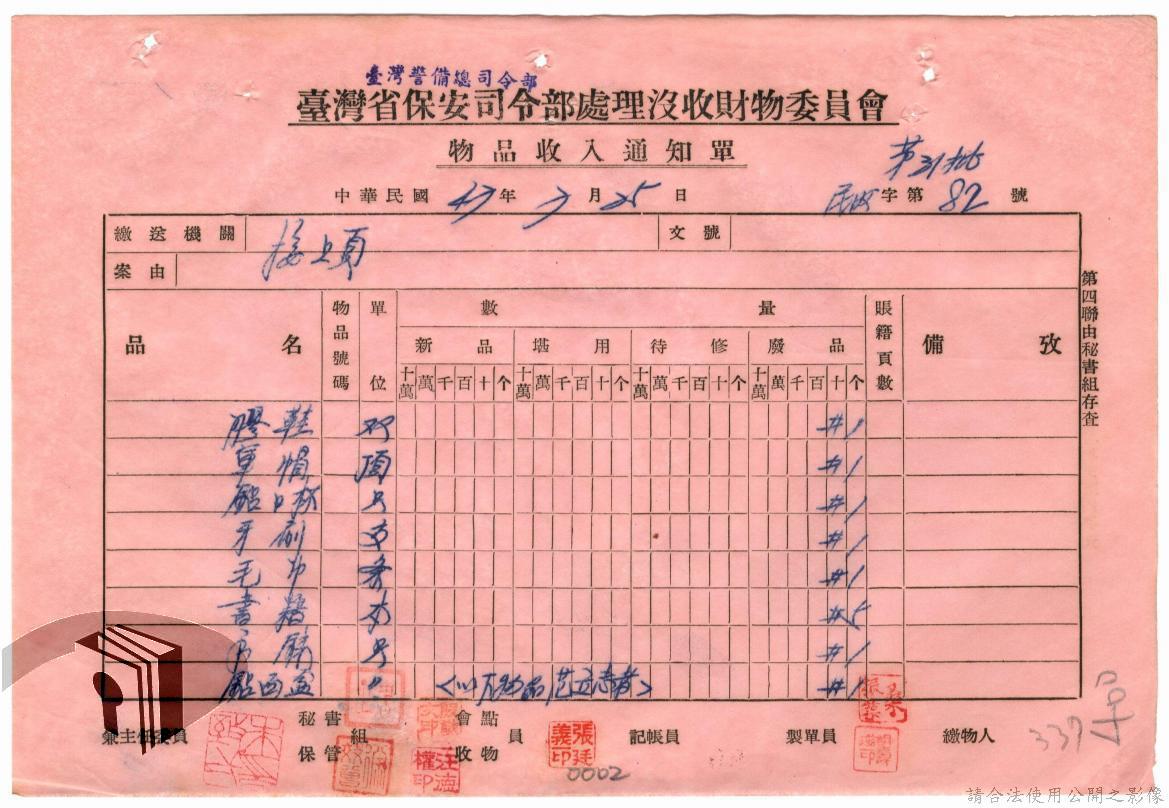 臺灣警備總司令部
臺灣省保安司令部處理沒收財物委員會
物品收入通知單
第31批
中華民國 47年 7月 25日
字第 82 號
繳送機關 接上頁 文號
案由
第四聯由秘書組存查
品名 物品號碼 單位 數量 賬籍頁數 備攷
新品 堪用 待修 廢品
十萬 萬 千 百 十 个 十萬 萬 千 百 十 个 十萬 萬 千 百 十 个 十萬 萬 千 百 十 个
膠鞋 双 #1
軍帽 頂 #1
鋁口杯 只 #1
牙刷 支 #1
毛巾 条 #1
書籍 本 #5
只 #1
鋁面盆 〃 <以下物品 范立志者> #1
兼主任委員 秘書 保管 組 會點 收物 員 記帳員 製單員 繳物人
張廷義印
汪德權印
337
0002
請合法使用公開之影像